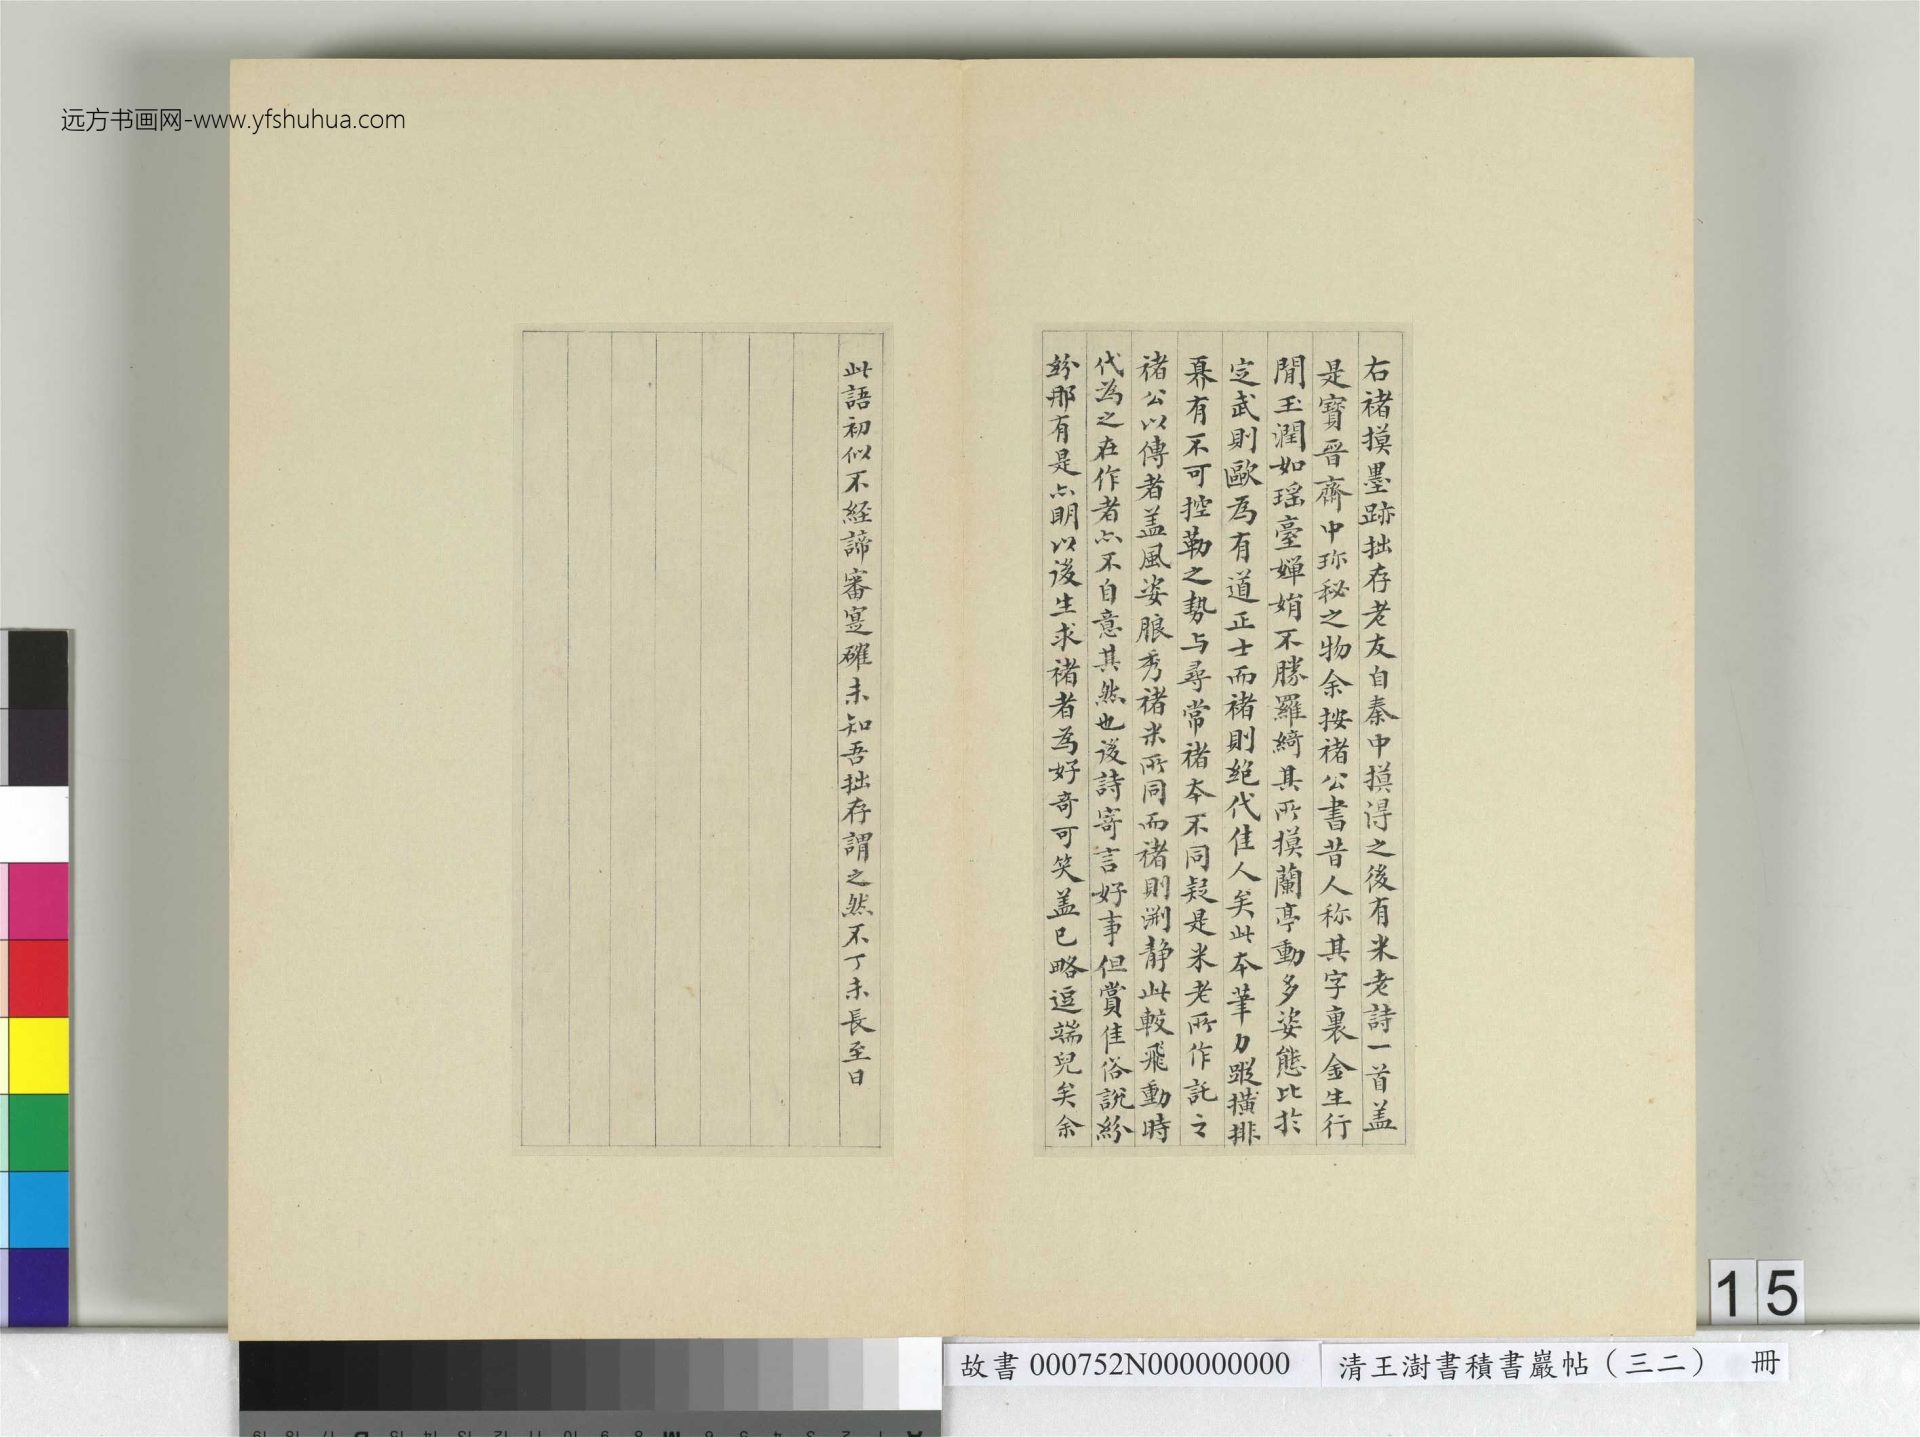 远方书画网-www.yfshuhua.com
右褚摸墨跡拙存老友自秦中摸得之後有米老詩一首盖
是寳晋齋中珎秘之物余按褚公書昔人称其字裏金生行
間玉潤如瑶臺嬋娟不勝羅綺其所摸蘭亭動多姿態比於
定武則歐為有道正士而褚則絕代佳人矣此本筆力蹤撗排
奡有不可控勒之勢与尋常褚本不同疑是米老所作託之
褚公以傳者盖風姿朖秀褚米所同而褚則渊静此較飛動時
代為之在作者亦不自意其然也後詩寄言好事但賞佳俗說紛
紛那有是亦明以後生求褚者為好奇可笑盖已略逗端兒矣余
此語初似不経諦審寔確未知吾拙存謂之然不丁未長至日
15
故書 000752N000000000
清王澍書積書巖帖（三二） 冊